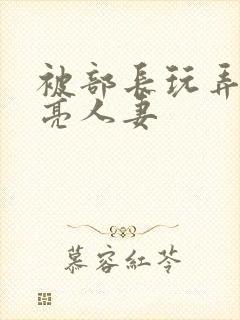 被部長玩弄
亮人妻
慕容紅苓